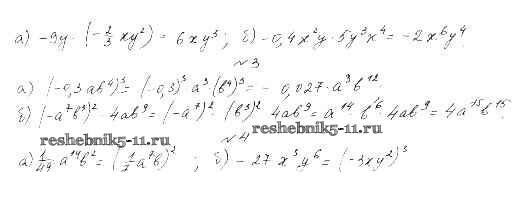 а) -9y · (-2/3 xy²) = 6xy³; б) -0,4x²y · 5y³x⁴ = -2x⁶y⁴
№3
а) (-0,3ab⁴)³ = (-0,3)³ a³·(b⁴)³ = -0,027·a³b¹²
б) (-a⁷b³)² · 4ab⁹ = (-a⁷)² · (b³)² · 4ab⁹ = a¹⁴·b⁶·4ab⁹ = 4a¹⁵b¹⁵.
reshebnik5-11.ru reshebnik5-11.ru
№4
а) 1/49 a¹⁴b² = (1/7 a⁷b)²; б) -27x³y⁶ = (-3xy²)³